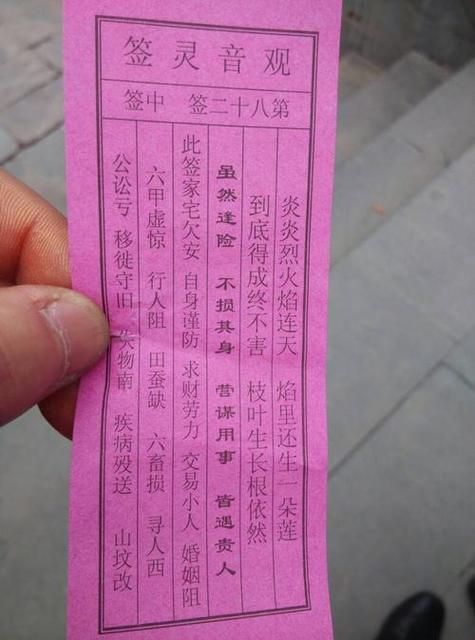 观音灵签
第八十二签 中签
炎炎烈火焰连天 焰里还生一朵莲
到底得成终不害 枝叶生长根依然
虽然逢险 不损其身 营谋用事 皆遇贵人
此签家宅欠安 自身谨防 求财劳力 交易小人 婚姻阻
六甲虚惊 行人阻 田蚕缺 六畜损 寻人西
公讼亏 移徙守旧 失物南 疾病殁送 山坟改